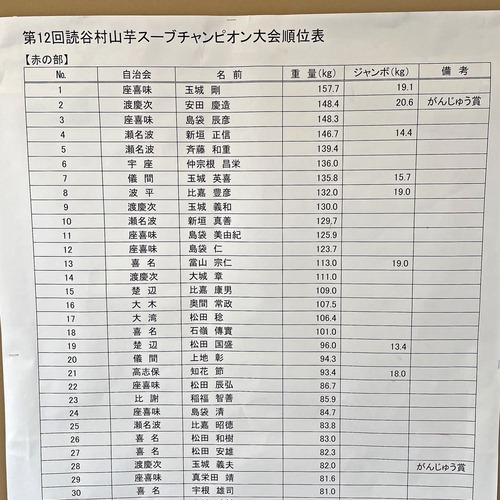 第12回読谷村山芋スーブチャンピオン大会順位表
【赤の部】
No. 自治会 名 前 重 量 (kg) ジャンボ(kg) 備 考
1 座喜味 玉城 剛 157.7 19.1
2 渡慶次 安田 慶造 148.4 20.6 がんじゅう賞
3 座喜味 島袋 辰彦 148.3
4 瀬名波 新垣 正信 146.7 14.4
5 瀬名波 斉藤 和重 139.4
6 宇 座 仲宗根 昌栄 136.0
7 儀 間 玉城 英喜 135.8 15.7
8 波 平 比嘉 豊彦 132.0 19.0
9 渡慶次 玉城 義和 130.0
10 瀬名波 新垣 真善 129.7
11 座喜味 島袋 美由紀 125.9
12 座喜味 島袋 仁 123.7
13 喜 名 當山 宗仁 113.0 19.0
14 渡慶次 大城 章 111.0
15 楚 辺 比嘉 康男 109.0
16 大 木 奥間 常政 107.5
17 大 湾 松田 稔 106.4
18 喜 名 石嶺 傳實 101.0
19 楚 辺 松田 国盛 96.0 13.4
20 儀 間 上地 彰 94.3
21 高志保 知花 節 93.4 18.0
22 座喜味 松田 辰弘 86.7
23 比 謝 稲福 智善 85.9
24 座喜味 島袋 清 84.7
25 瀬名波 比嘉 昭徳 83.8
26 喜 名 松田 和樹 83.0
27 喜 名 松田 安雄 82.3
28 渡慶次 玉城 義夫 82.0 がんじゅう賞
29 座喜味 真栄田 靖 81.6
30 喜 名 宇根 雄司 81.0